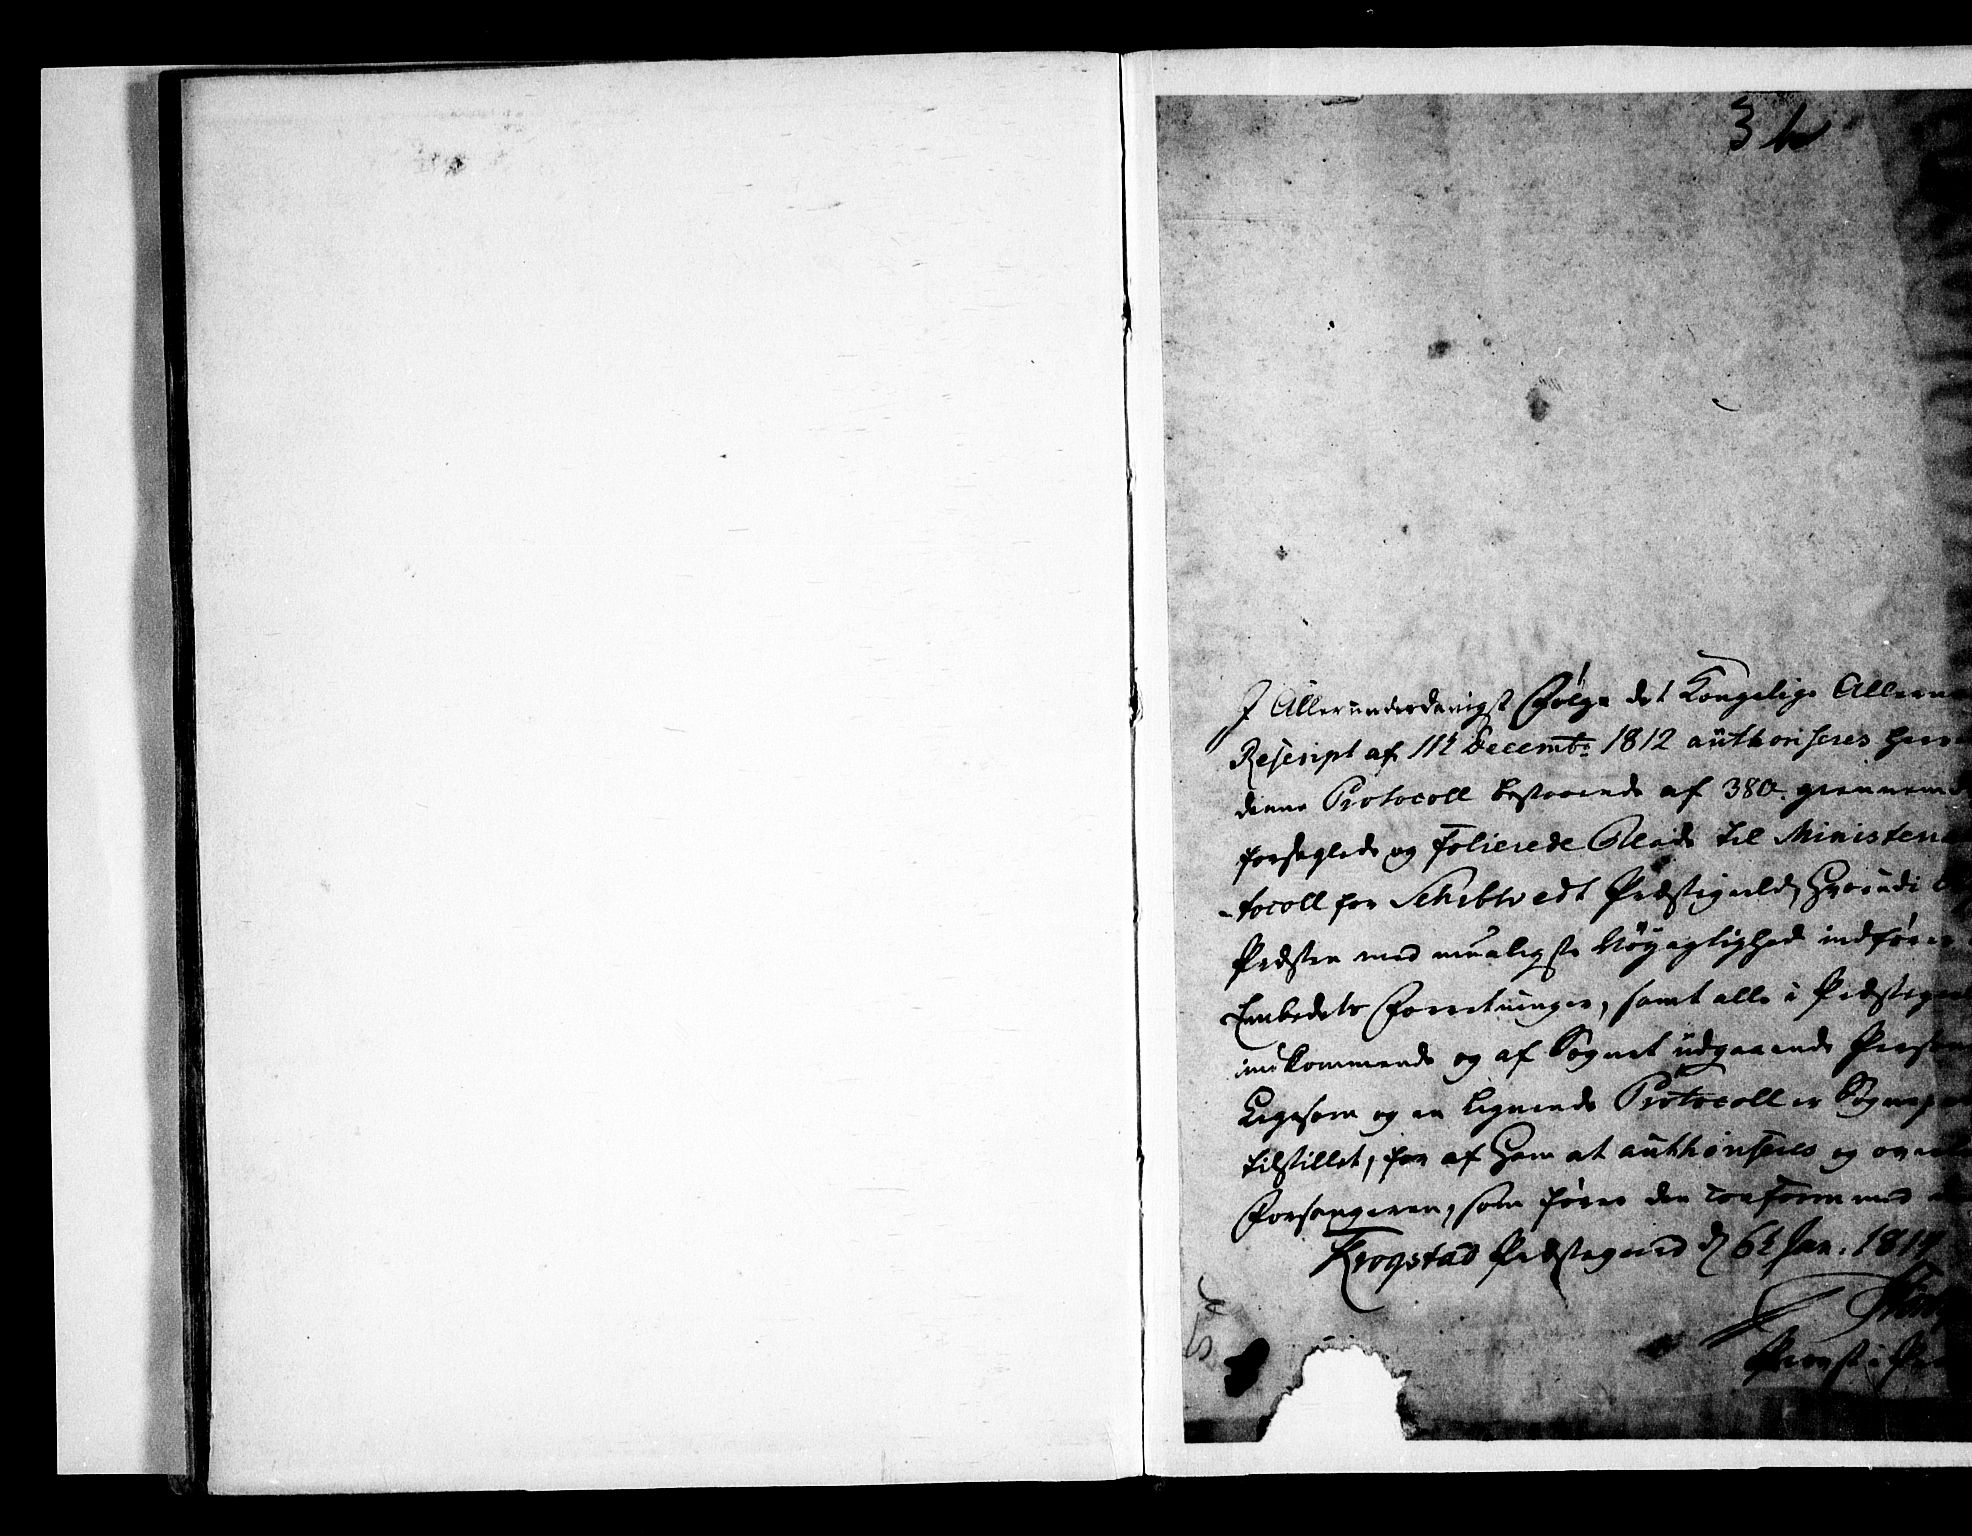 3 b
I Allerunderdanigst Følge det Kongelige Allerna
Rescript af 11te Decembr: 1812 authoriseres her
denne Protocoll bestaaende af 380. giennem
forseglede og Folierede Blade til Ministeria
-tocoll for Schibtvedt Præstegield, Hvorudi
Præsten med mueligste Nöyagtighed indfører
Embedets Forretninger, samt alle i Præstegie
indkommende og af Sognet udgaaende Persone
Ligesom og en lignende Protocoll er Sognep
tilstillet, for af Ham at authoriseres og over
Forsangeren, som fører den conform med
Krogstad Præstegaard d 6te Jan: 1814
Provst i